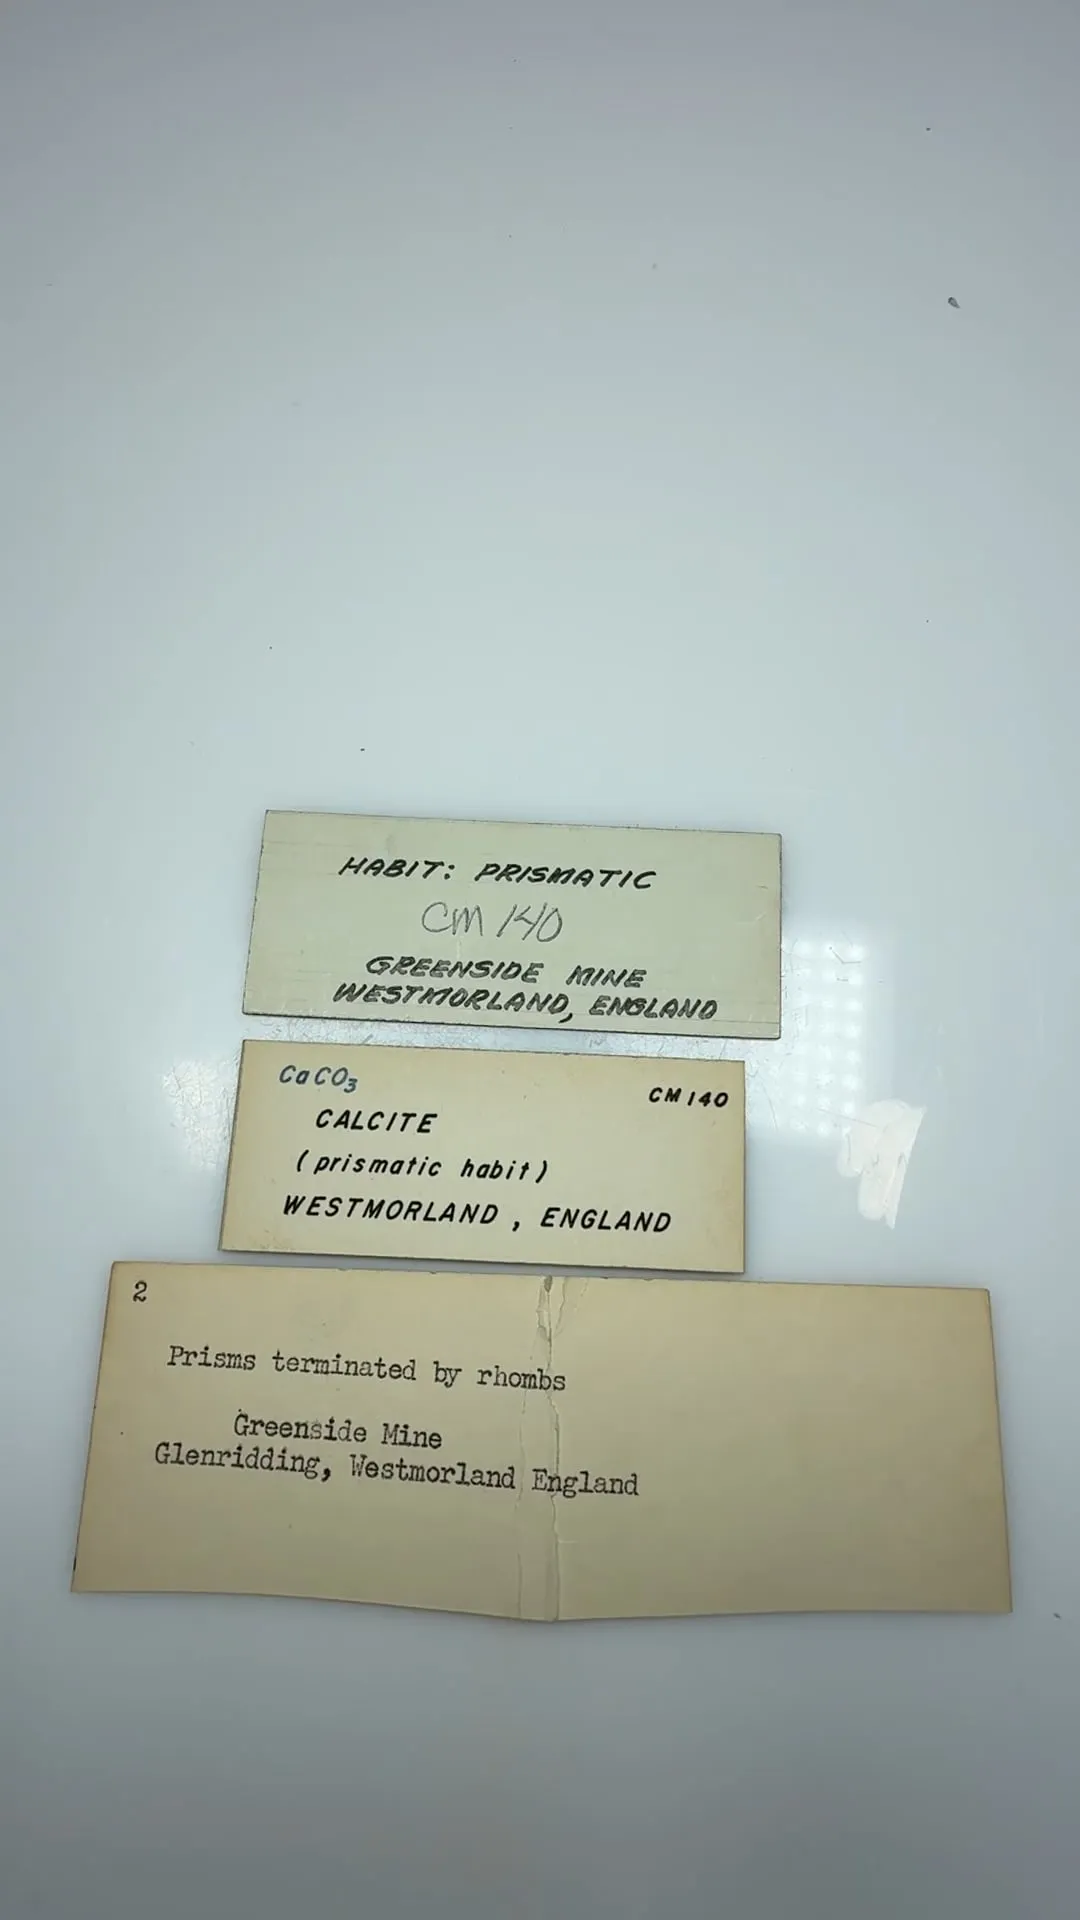 HABIT: PRISMATIC
CM 140
GREENSIDE MINE
WESTMORLAND, ENGLAND
CaCO₃
CM 140
CALCITE
(prismatic habit)
WESTMORLAND, ENGLAND
2
Prisms terminated by rhombs
Greenside Mine
Glenridding, Westmorland England